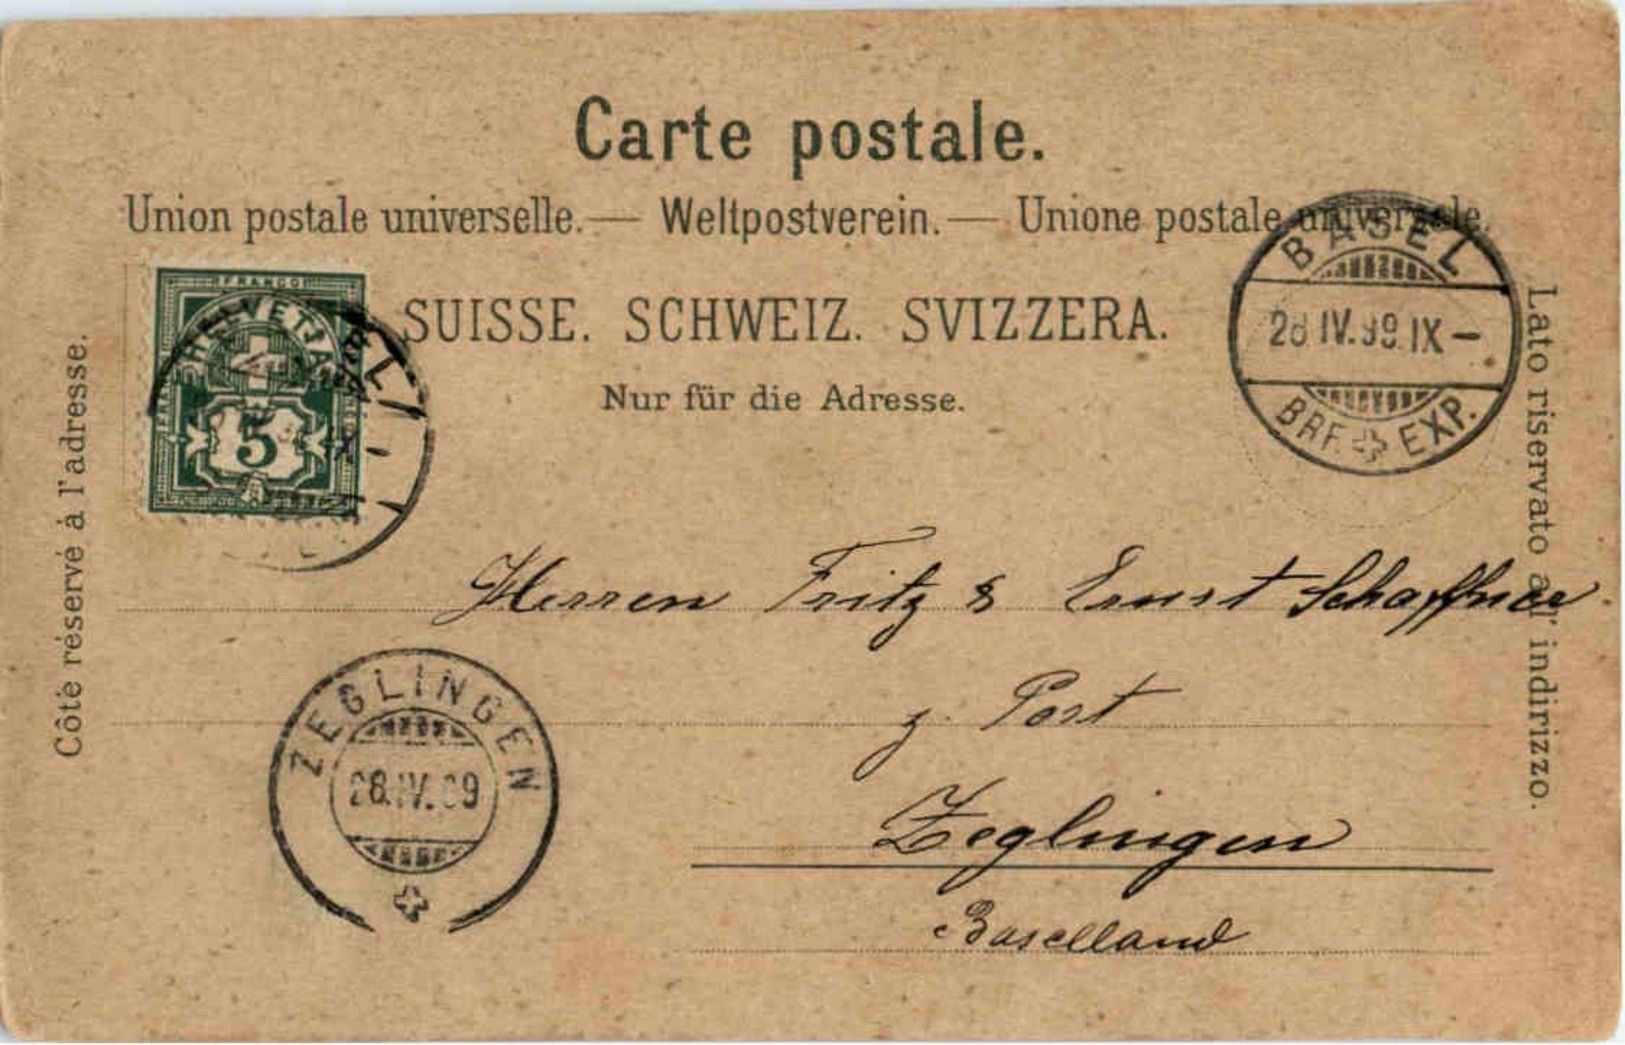 Carte postale.
Union postale universelle. — Weltpostverein. — Unione postale universale.
SUISSE. SCHWEIZ. SVIZZERA.
Nur für die Adresse.
Côté réservé à l'adresse.
Lato riservato all' indirizzo.
FRANCO
HELVETIA
5
BASEL
28 IV. 99. IX –
BRF. EXP.
Herren Fritz & Ernst Schaffner
z. Post
Zeglingen
Baselland
ZEGLINGEN
28.IV. 99